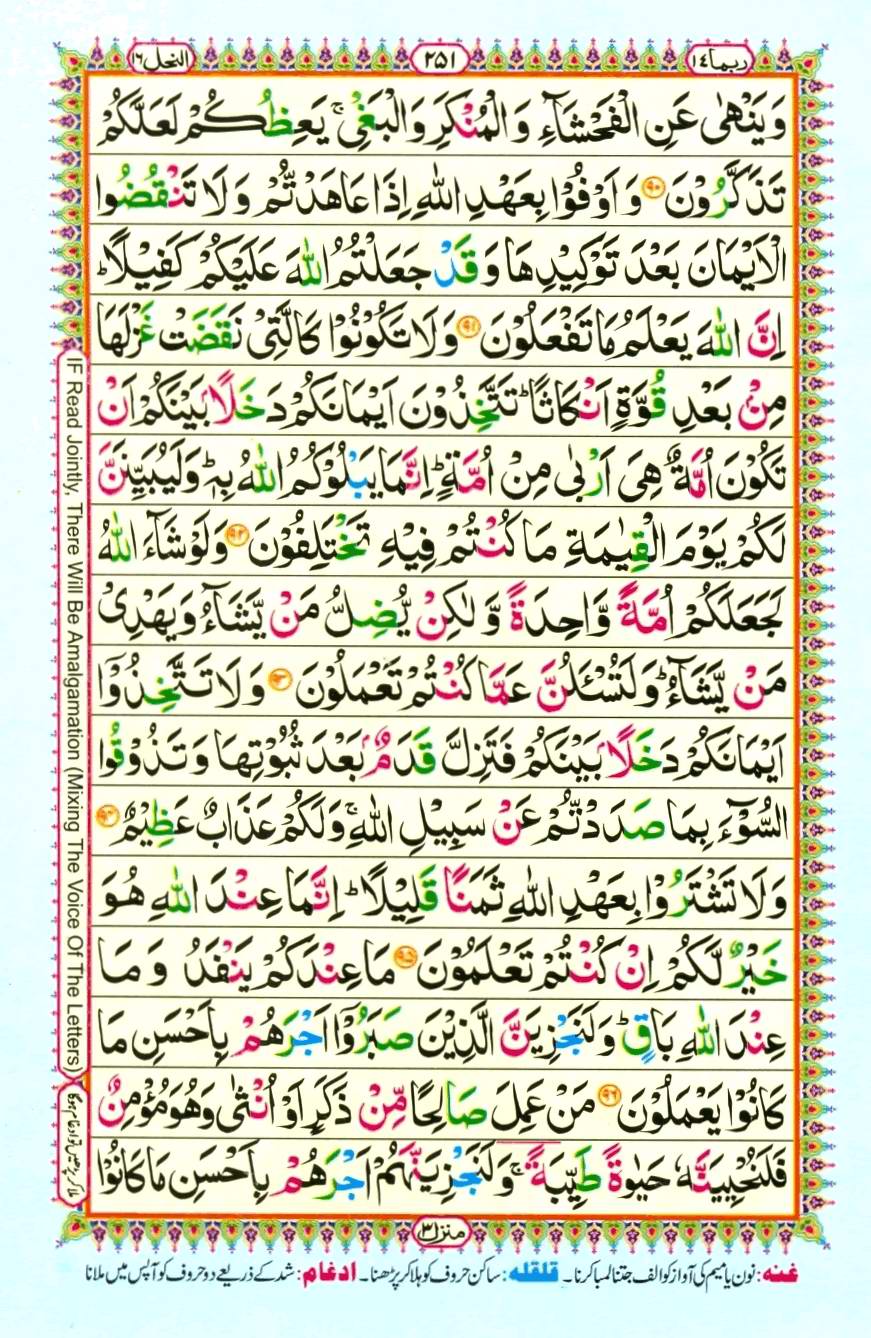 ربما ١٤
٢٥١
النحل ١٦
وَيَنْهٰى عَنِ الْفَحْشَآءِ وَ الْمُنْكَرِ وَالْبَغْىِ ۚ يَعِظُكُمْ لَعَلَّكُمْ
تَذَكَّرُوْنَ ﴿٩٠﴾ وَ اَوْفُوْا بِعَهْدِ اللّٰهِ اِذَا عَاهَدْتُّمْ وَ لَا تَنْقُضُوا
الْاَيْمَانَ بَعْدَ تَوْكِيْدِهَا وَ قَدْ جَعَلْتُمُ اللّٰهَ عَلَيْكُمْ كَفِيْلًا ؕ
اِنَّ اللّٰهَ يَعْلَمُ مَا تَفْعَلُوْنَ ﴿٩١﴾ وَلَا تَكُوْنُوْا كَالَّتِىْ نَقَضَتْ غَزْلَهَا
مِنْۢ بَعْدِ قُوَّةٍ اَنْكَاثًا ؕ تَتَّخِذُوْنَ اَيْمَانَكُمْ دَخَلًاۢ بَيْنَكُمْ اَنْ
تَكُوْنَ اُمَّةٌ هِىَ اَرْبٰى مِنْ اُمَّةٍ ؕ اِنَّمَا يَبْلُوْكُمُ اللّٰهُ بِهٖ ؕ وَلَيُبَيِّنَنَّ
لَكُمْ يَوْمَ الْقِيٰمَةِ مَا كُنْتُمْ فِيْهِ تَخْتَلِفُوْنَ ﴿٩٢﴾ وَلَوْ شَآءَ اللّٰهُ
لَجَعَلَكُمْ اُمَّةً وَّاحِدَةً وَّ لٰكِنْ يُّضِلُّ مَنْ يَّشَآءُ وَيَهْدِىْ
مَنْ يَّشَآءُ ؕ وَلَتُسْـَٔلُنَّ عَمَّا كُنْتُمْ تَعْمَلُوْنَ ﴿٩٣﴾ وَ لَا تَتَّخِذُوْۤا
اَيْمَانَكُمْ دَخَلًاۢ بَيْنَكُمْ فَتَزِلَّ قَدَمٌۢ بَعْدَ ثُبُوْتِهَا وَ تَذُوْقُوا
السُّوْٓءَ بِمَا صَدَدْتُّمْ عَنْ سَبِيْلِ اللّٰهِ ۚ وَلَكُمْ عَذَابٌ عَظِيْمٌ ﴿٩٤﴾
وَلَا تَشْتَرُوْا بِعَهْدِ اللّٰهِ ثَمَنًا قَلِيْلًا ؕ اِنَّمَا عِنْدَ اللّٰهِ هُوَ
خَيْرٌ لَّكُمْ اِنْ كُنْتُمْ تَعْلَمُوْنَ ﴿٩٥﴾ مَا عِنْدَكُمْ يَنْفَدُ وَ مَا
عِنْدَ اللّٰهِ بَاقٍ ؕ وَلَنَجْزِيَنَّ الَّذِيْنَ صَبَرُوْۤا اَجْرَهُمْ بِاَحْسَنِ مَا
كَانُوْا يَعْمَلُوْنَ ﴿٩٦﴾ مَنْ عَمِلَ صَالِحًا مِّنْ ذَكَرٍ اَوْ اُنْثٰى وَهُوَ مُؤْمِنٌ
فَلَنُحْيِيَنَّهٗ حَيٰوةً طَيِّبَةً ۚ وَلَنَجْزِيَنَّهُمْ اَجْرَهُمْ بِاَحْسَنِ مَا كَانُوْا
منزل ٣
غنه: نون یا میم کی آواز کو الف جتنا لمبا کرنا۔ قلقله: ساکن حروف کو ہلا کر پڑھنا۔ ادغام: شد کے ذریعے دو حروف کو آپس میں ملانا
IF Read Jointly, There Will Be Amalgamation (Mixing The Voice Of The Letters)
ملا کر پڑھیں تو ادغام ہوگا